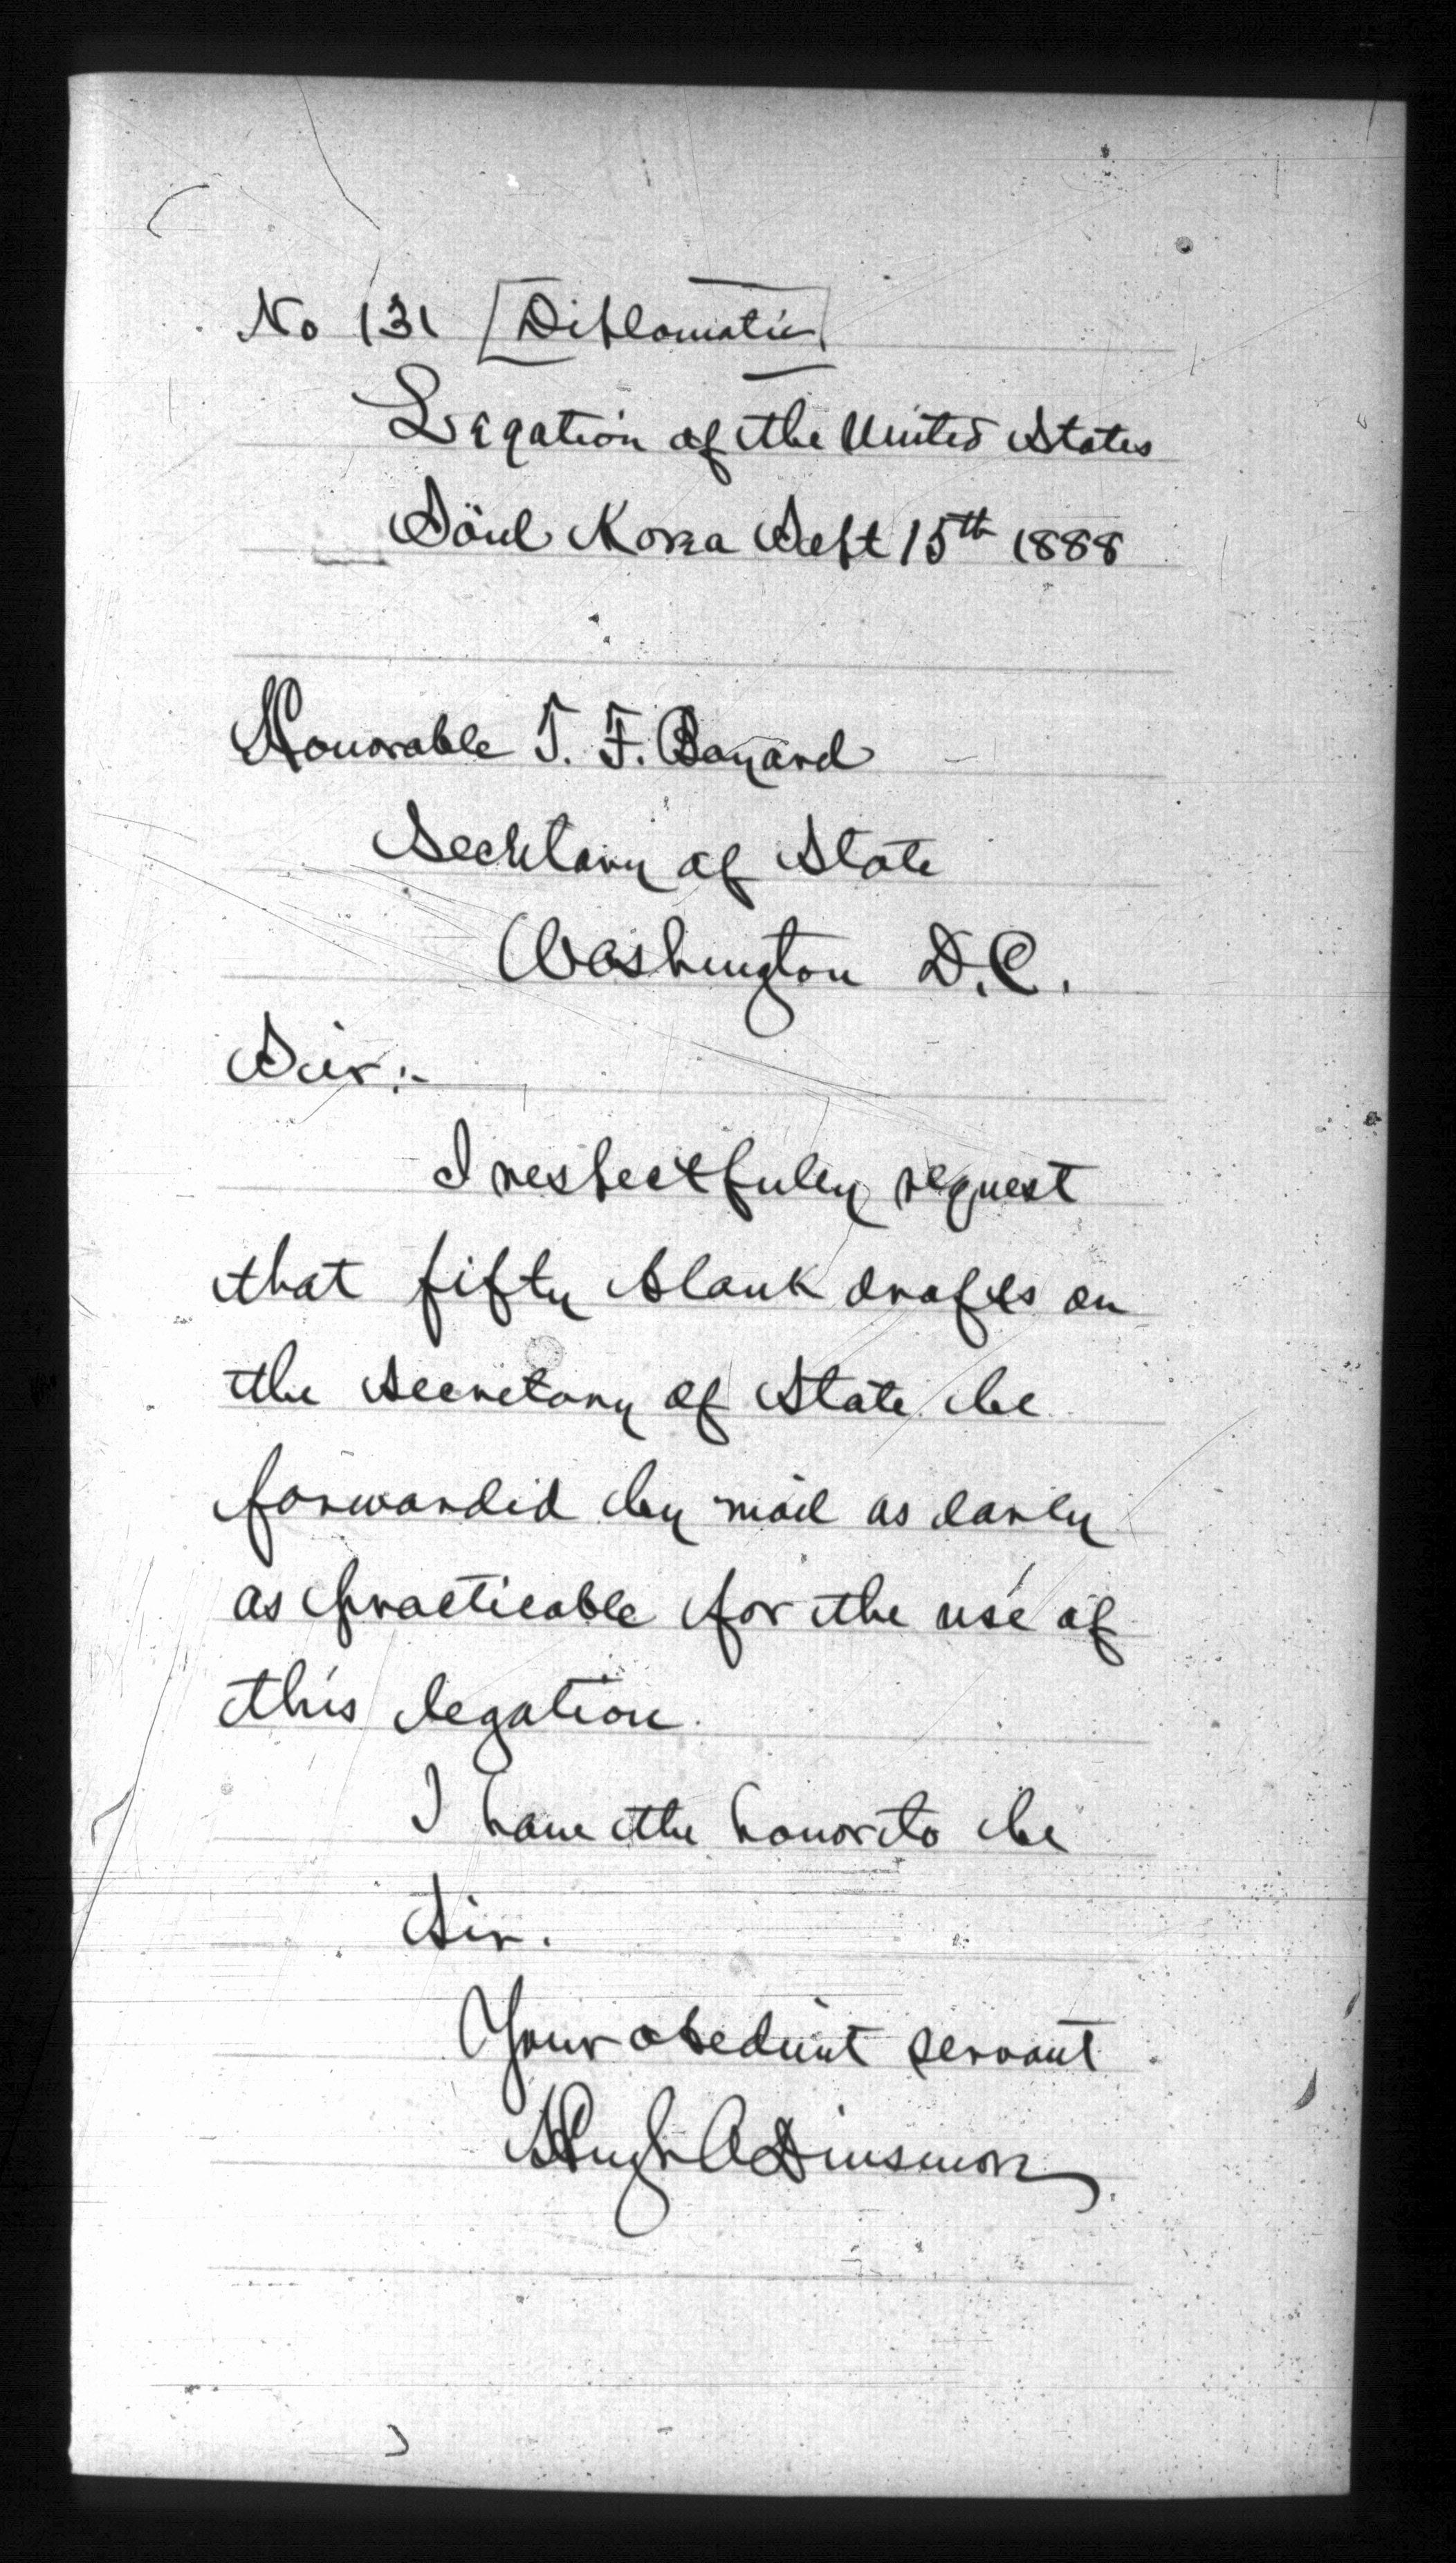 No 131 [Diplomatic]
Legation of the United States
Söul Korea Sept 15th 1888
Honorable T. F. Bayard
Secretary of State
Washington D.C.
Sir:-
I respectfully request
that fifty blank drafts on
the Secretary of State be
forwarded by mail as early
as practicable for the use of
this legation.
I have the honor to be
Sir.
Your obedient servant
Hugh A Dinsmore